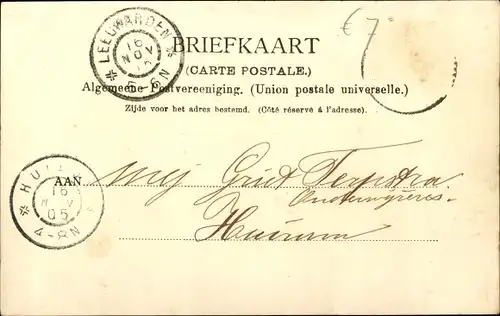 € 7
LEEUWARDEN
16
NOV
5-6N
BRIEFKAART
(CARTE POSTALE.)
Algemeene Postvereeniging. (Union postale universelle.)
Zijde voor het adres bestemd. (Côté réservé à l'adresse).
16
05
4-8N
AAN
Mej Griet Terpstra
Onderwijzeres
Huizum